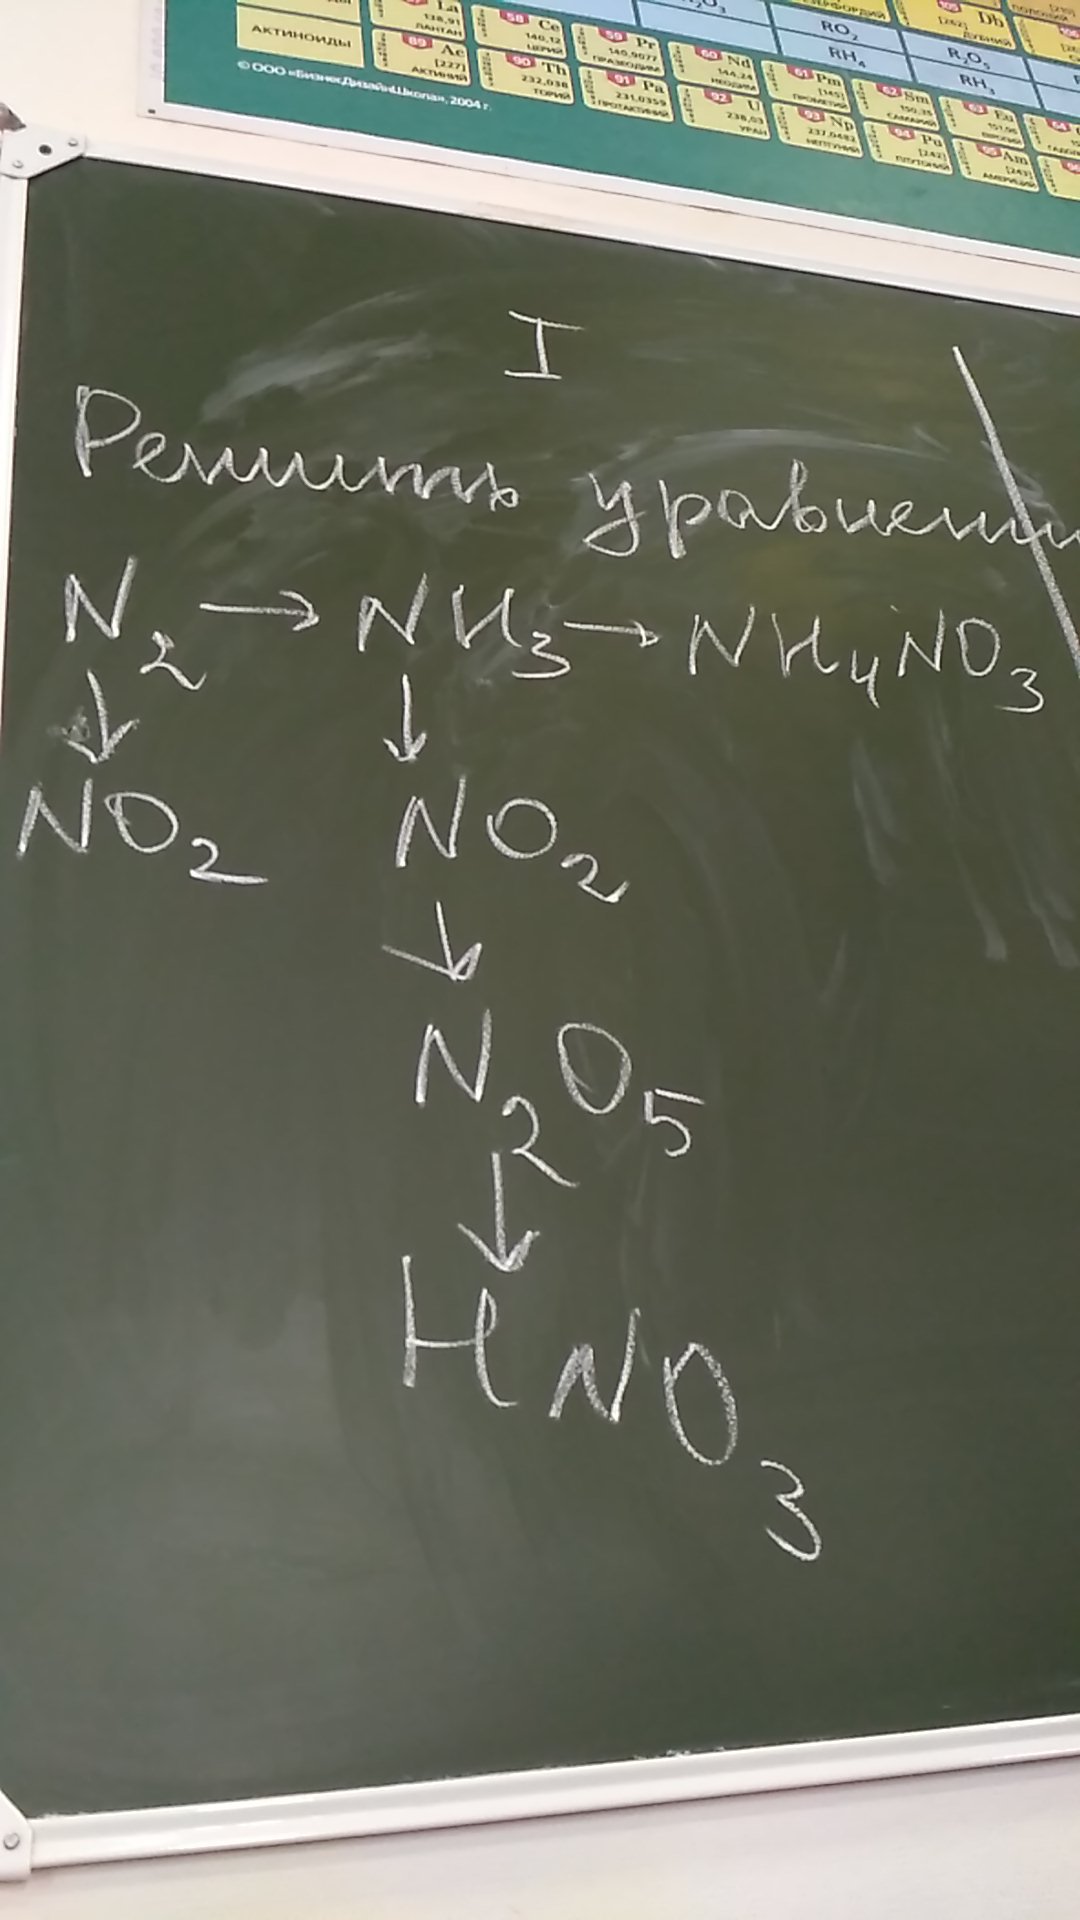 АКТИНОИДЫ
La
138,91
ЛАНТАН
58 Ce
140,12
ЦЕРИЙ
59 Pr
140,9077
ПРАЗЕОДИМ
60 Nd
144,24
НЕОДИМ
61 Pm
[145]
ПРОМЕТИЙ
62 Sm
150,35
САМАРИЙ
63 Eu
151,96
ЕВРОПИЙ
64
89 Ac
[227]
АКТИНИЙ
90 Th
232,038
ТОРИЙ
91 Pa
231,0359
ПРОТАКТИНИЙ
92 U
238,03
УРАН
93 Np
237,0482
НЕПТУНИЙ
94 Pu
[242]
ПЛУТОНИЙ
95 Am
[243]
АМЕРИЦИЙ
96
RO₂
RH₄
R₂O₅
RH₃
105 Db
[262]
ДУБНИЙ
106
© ООО «БизнесДизайнШкола», 2004 г.
I
Решить уравнени
N₂ → NH₃ → NH₄NO₃
↓ ↓
NO₂ NO₂
↓
N₂O₅
↓
HNO₃